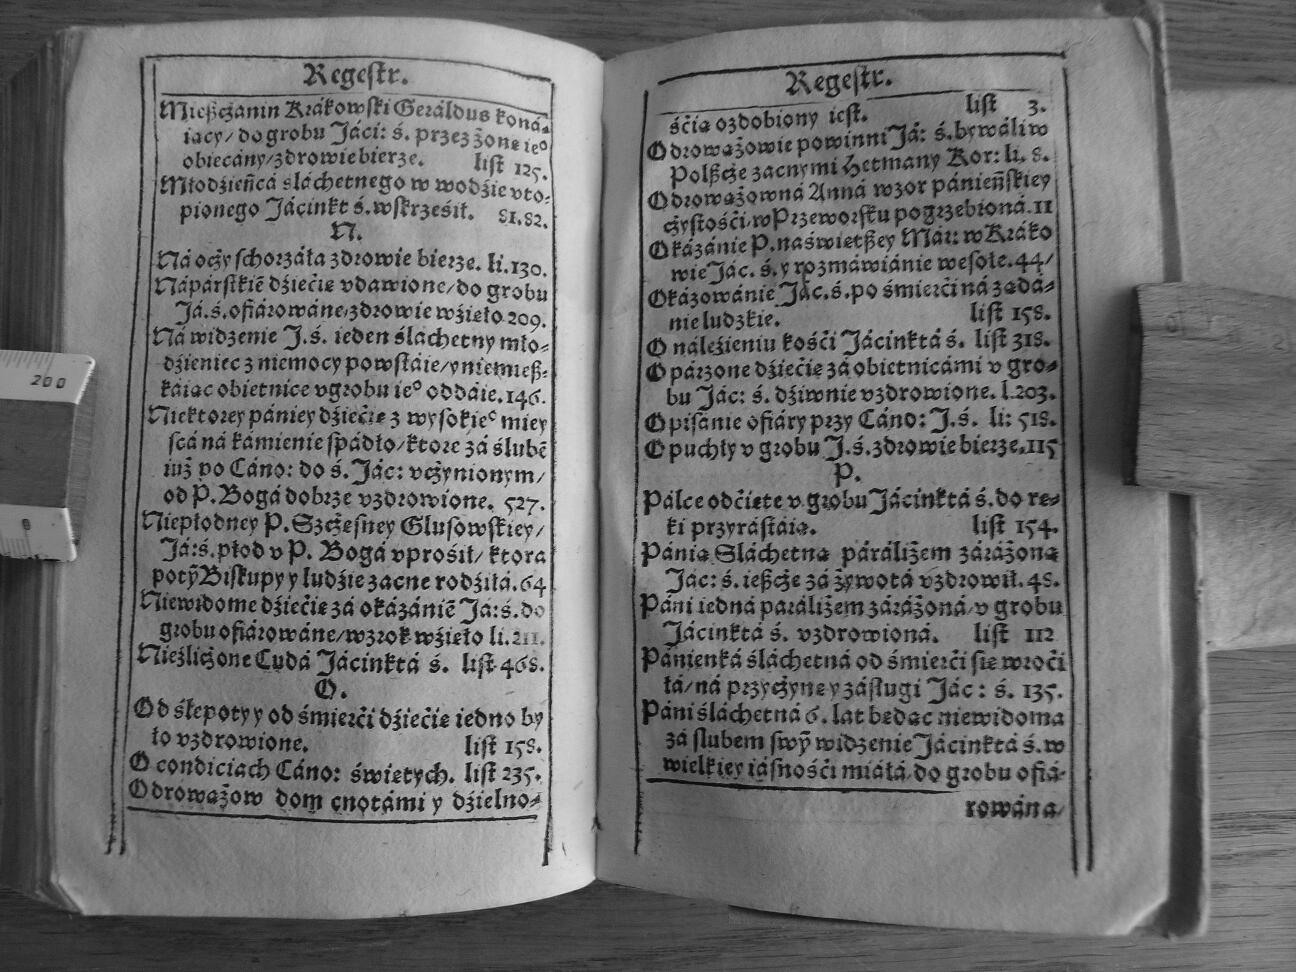 Regestr.
Mießcżánin Krákowſki Geráldus koná⸗
iący/ do grobu Jáci: ś. przez żonę ie⁰
obiecány/ zdrowie bierze. liſt 125.
Młodźieńcá ślachetnego w wodźie vto⸗
pionego Jácinkt ś. wſkrześił. 81.82.
N.
Ná ocży ſchorzáła zdrowie bierze. li. 130.
Náparſtkiẽ dźiećię vdawione/ do grobu
Já. ś. ofiárowáne/ zdrowie wźięło 209.
Ná widzenie J. ś. ieden ślachetny mło⸗
dźieniec z niemocy powſtáie/ y niemieß⸗
káiąc obietnice v grobu ie⁰ oddáie. 146.
Niektorey pániey dźiećię z wyſokie⁰ miey
ſcá ná kámienie ſpádło/ ktore zá ślubẽ
iuż po Cáno: do ś. Jác: vcżynionym/
od P. Bogá dobrze vzdrowione. 527.
Niepłodney P. Szcżeſney Gluſowſkiey/
Já: ś. płod v P. Bogá vprośił/ ktora
potỹ Biſkupy y ludźie zacne rodźiłá. 64
Niewidome dźiećię zá okázániẽ Já: ś. do
grobu ofiárowáne/ wzrok wźięło li. 211.
Nieźlicżone Cudá Jácinktá ś. liſt 468.
O.
Od ślepoty y od śmierći dźiećię iedno by
ło vzdrowione. liſt 158.
O condiciach Cáno: świętych. liſt 235.
Odrowążow dom cnotámi y dźielno⸗
Regestr.
śćią ozdobiony ieſt. liſt 3.
Odrowążowie powinni Já: ś. bywáli w
Polßcże zacnymi Hetmany Kor: li. 8.
Odrowążowná Anná wzor pánieńſkiey
cżyſtośći/ w Przeworſku pogrzebioná. 11
Okázánie P. naświętßey Már: w Kráko
wie Jác. ś. y rozmáwiánie weſołe. 44/
Okázowánie Jác. ś. po śmierći ná żądá⸗
nie ludzkie. liſt 158.
O náleźieniu kośći Jácinktá ś. liſt 318.
Opárzone dźiećię zá obietnicámi v gro⸗
bu Jác: ś. dźiwnie vzdrowione. l. 203.
Opiſánie ofiáry przy Cáno: J. ś. li: 518.
Opuchły v grobu J. ś. zdrowie bierze. 115
P.
Pálce odćięte v grobu Jácinktá ś. do rę⸗
ki przyráſtáią. liſt 154.
Pánią Sláchetną páráliżem záráżoną
Jác: ś. ießcże zá żywotá vzdrowił. 48.
Páni iedná paráliżem záráżoná/ v grobu
Jácinktá ś. vzdrowioná. liſt 112
Pánienká śláchetná od śmierći ſię wroći
łá/ ná przycżynę y zaſługi Jác: ś. 135.
Páni śláchetná 6. lat będąc niewidoma
zá ſlubem ſwỹ widzenie Jácinktá ś. w
wielkiey iáſnośći miáłá/ do grobu ofiá⸗
rowána/
200
0